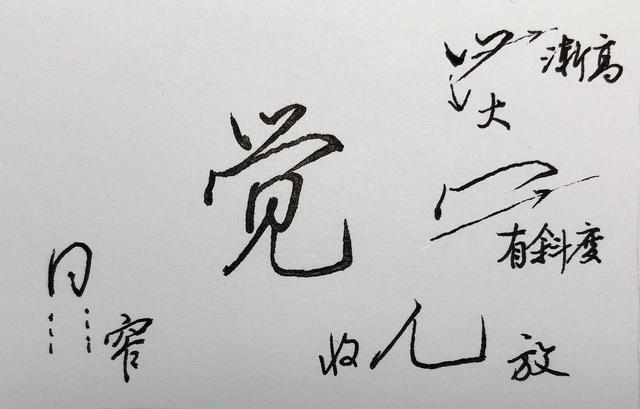 渐高
大
觉
有斜度
窄
收
放